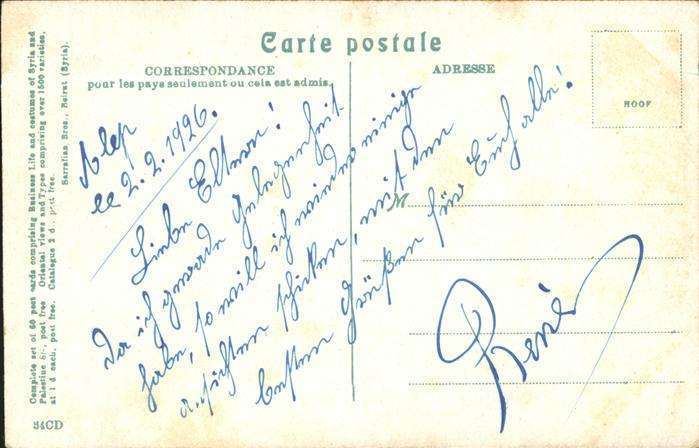 Complete set of 60 post cards comprising Business Life and costumes of Syria and
Palestine 5/-, post free Oriental views and Types comprising over 1500 varieties,
at 1 d each, post free. Catalogue 2 d., post free.
Sarrafian Bros., Beirut (Syria).
34CD
Carte postale
CORRESPONDANCE
pour les pays seulement ou cela est admis.
ADRESSE
M
Alep
le 2.2.1926.
Liebe Eltern!
Da ich gerade Gelegenheit
habe, so will ich wieder einige
Ansichten schicken, mit den
besten Grüßen für Euch alle!
René